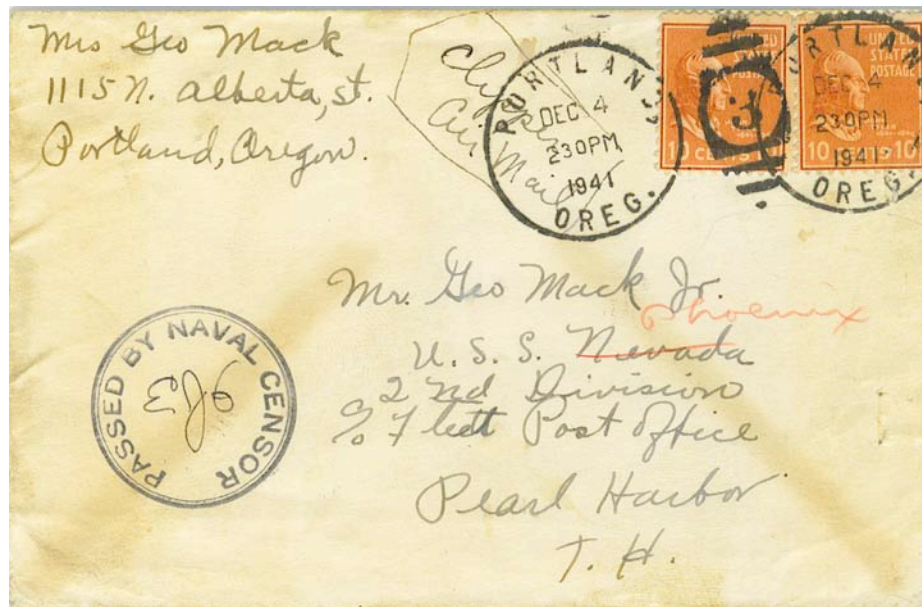 Mrs Geo Mack
1115 N. Alberta, st.
Portland, Oregon.
Clipper
Air
Mail
PORTLAND,
DEC 4
230PM
1941
OREG.
3
UNITED
STATES
POSTAGE
10 CENTS
PORTLAND
DEC 4
230PM
1941
OREG.
UNITED
STATES
POSTAGE
10 CENTS 10
Mr. Geo Mack Jr.
Phoenix
U. S. S. Nevada
2nd Division
c/o Fleet Post Office
Pearl Harbor
T. H.
PASSED BY NAVAL CENSOR